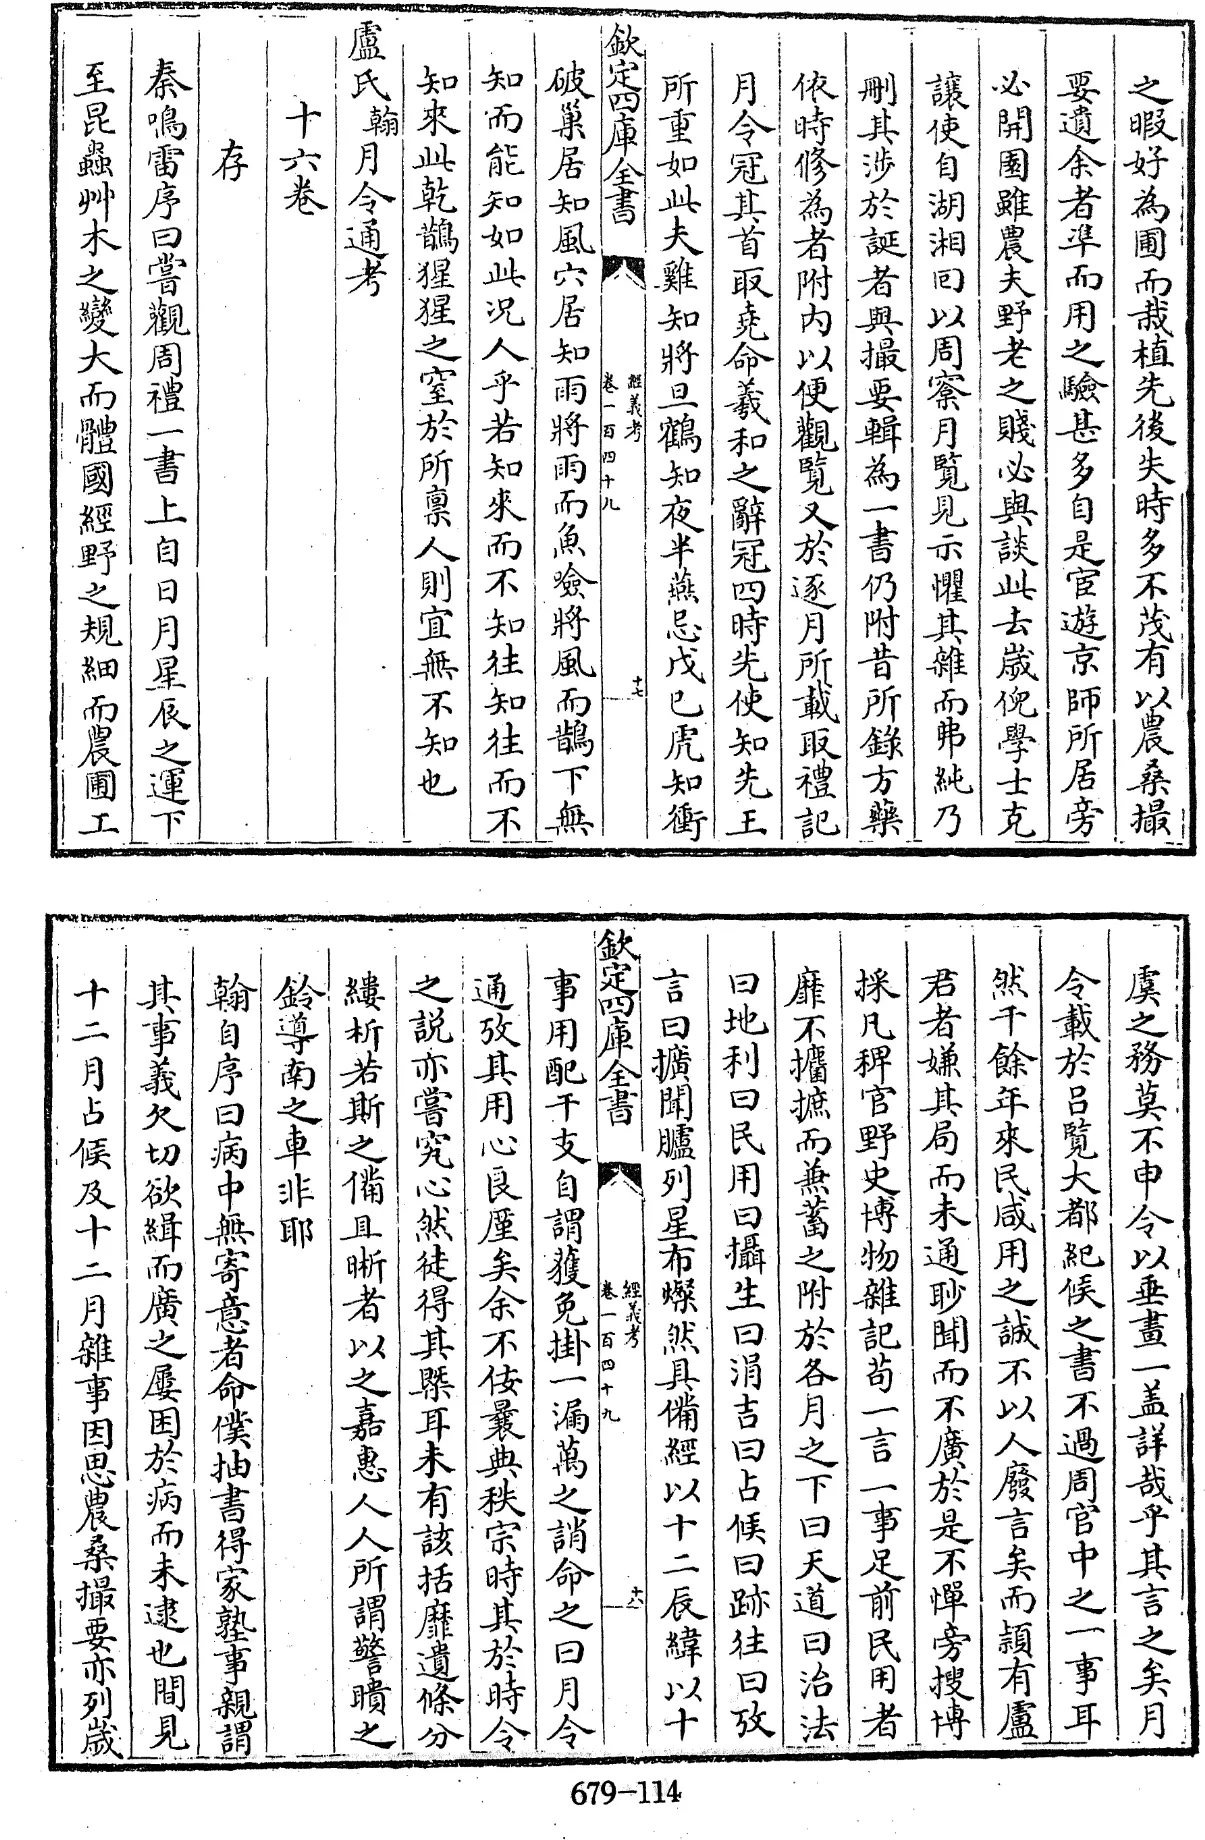 之暇好為圃而栽植先後失時多不茂有以農桑撮
要遺余者凖而用之驗甚多自是宦遊京師所居旁
必開園雖農夫野老之賤必與談此去嵗倪學士克
讓使自湖湘囘以周寀月覽見示懼其雜而弗純乃
刪其涉於誕者與撮要輯為一書仍附昔所錄方藥
依時修為者附内以便觀覽又於逐月所載取禮記
月令冠其首取堯命羲和之辭冠四時先使知先王
所重如此夫雞知將旦鶴知夜半燕忌戊己虎知衝
欽定四庫全書
經義考
卷一百四十九
十七
破巢居知風穴居知雨將雨而魚噞將風而鵲下無
知而能知如此况人乎若知來而不知往知往而不
知來此乾鵲猩猩之窒於所禀人則宜無不知也
盧氏翰月令通考
十六卷
存
秦鳴雷序曰嘗觀周禮一書上自日月星辰之運下
至昆蟲艸木之變大而體國經野之規細而農圃工
虞之務莫不申令以垂畫一盖詳哉乎其言之矣月
令載於吕覽大都紀候之書不過周官中之一事耳
然千餘年來民咸用之誠不以人廢言矣而頴有盧
君者嫌其局而未通耴聞而不廣於是不憚旁搜博
採凡稗官野史博物雜記苟一言一事足前民用者
靡不攟摭而兼蓄之附於各月之下曰天道曰治法
曰地利曰民用曰攝生曰涓吉曰占候曰跡往曰攷
言曰擴聞臚列星布燦然具備經以十二辰緯以十
欽定四庫全書
經義考
卷一百四十九
十八
事用配干支自謂獲免掛一漏萬之誚命之曰月令
通攷其用心良厪矣余不佞曩典秩宗時其於時令
之説亦嘗究心然徒得其槩耳未有該括靡遺條分
縷析若斯之備且晰者以之嘉惠人人所謂警瞶之
鈴導南之車非耶
翰自序曰病中無寄意者命僕抽書得家塾事親謂
其事義欠切欲緝而廣之屢困於病而未逮也間見
十二月占候及十二月雜事因思農桑撮要亦列嵗
679-114